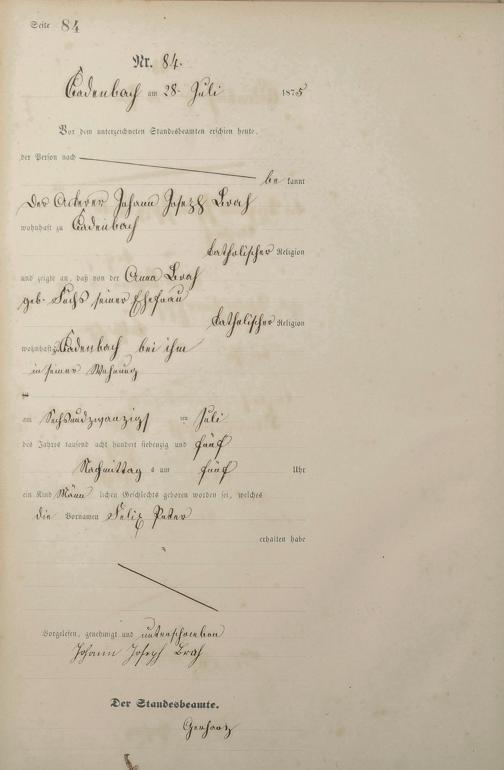 Seite 84
Nr. 84.
Cadenbach am 28. Juli 1875
Vor dem unterzeichneten Standesbeamten erschien heute,
der Person nach
be kannt
Der Ackerer Johann Joseph Brah
wohnhaft zu Cadenbach
katholischer Religion
und zeigte an, daß von der Anna Brah
geb. Fuchs seiner Ehefrau
katholischer Religion
wohnhaft zu Cadenbach bei ihm
in seiner Wohnung
am Sechsundzwanzigst en Juli
des Jahres tausend acht hundert siebenzig und fünf
Nachmittag s um fünf Uhr
ein Kind Männ lichen Geschlechts geboren worden sei, welches
die Vornamen Felix Peter
erhalten habe
Vorgelesen, genehmigt und unterschrieben
Johann Joseph Brah
Der Standesbeamte.
Gerhartz